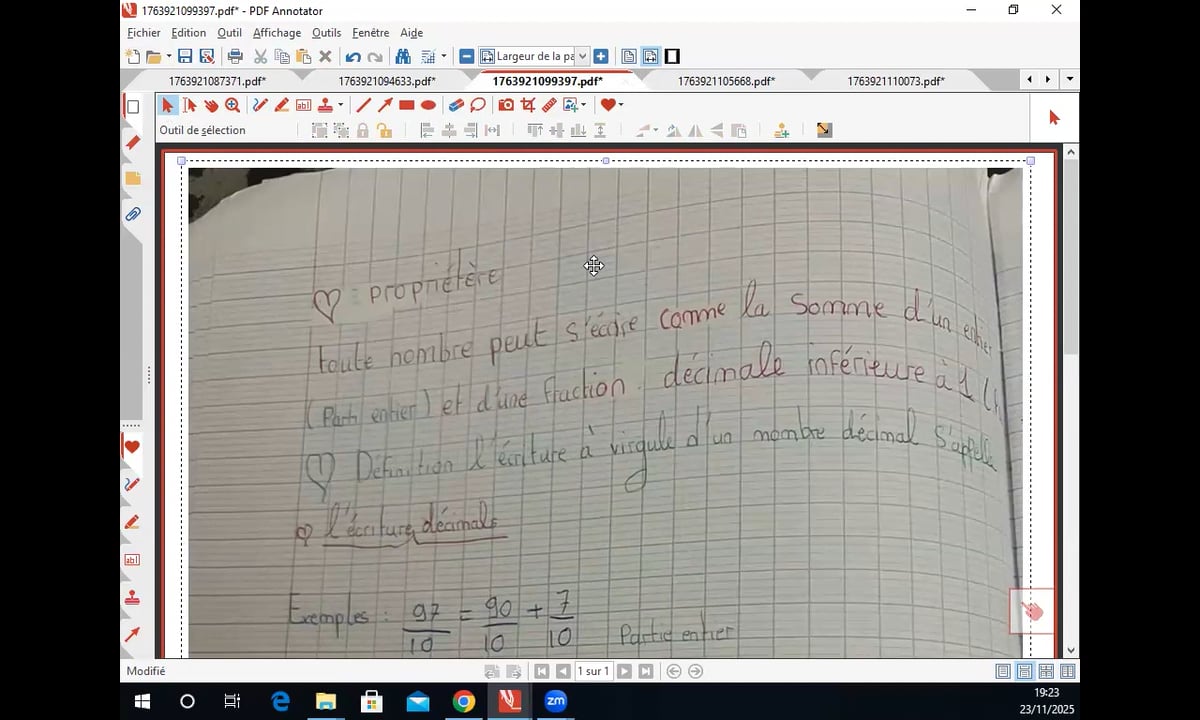 1763921099397.pdf* - PDF Annotator
Fichier Edition Outil Affichage Outils Fenêtre Aide
Largeur de la pa
1763921087371.pdf* 1763921094633.pdf* 1763921099397.pdf* 1763921105668.pdf* 1763921110073.pdf*
Outil de sélection
♡ : propriétère
toute nombre peut s'écrire comme la somme d'un entier
(Parti entier) et d'une fraction décimale inférieure à 1 (
♡ Définition l'écriture à virgule d'un nombre décimal s'appelle
♡ l'écriture décimals
Exemples : 97/10 = 90/10 + 7/10 Partie entier
Modifié 1 sur 1
zm
19:23
23/11/2025